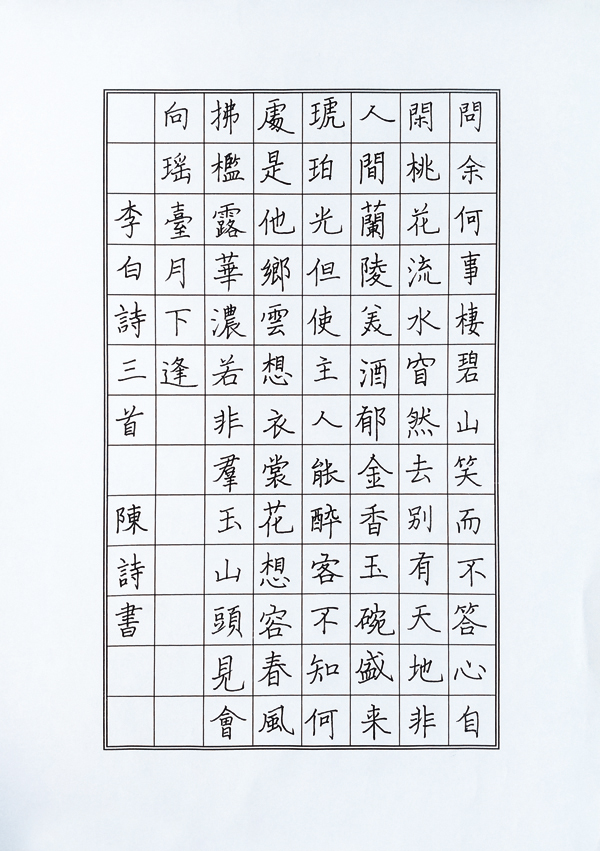 問余何事棲碧山笑而不答心自
閑桃花流水窅然去别有天地非
人間蘭陵美酒郁金香玉碗盛来
琥珀光但使主人能醉客不知何
處是他鄉雲想衣裳花想容春風
拂檻露華濃若非羣玉山頭見會
向瑶臺月下逢
李白詩三首 陳詩書